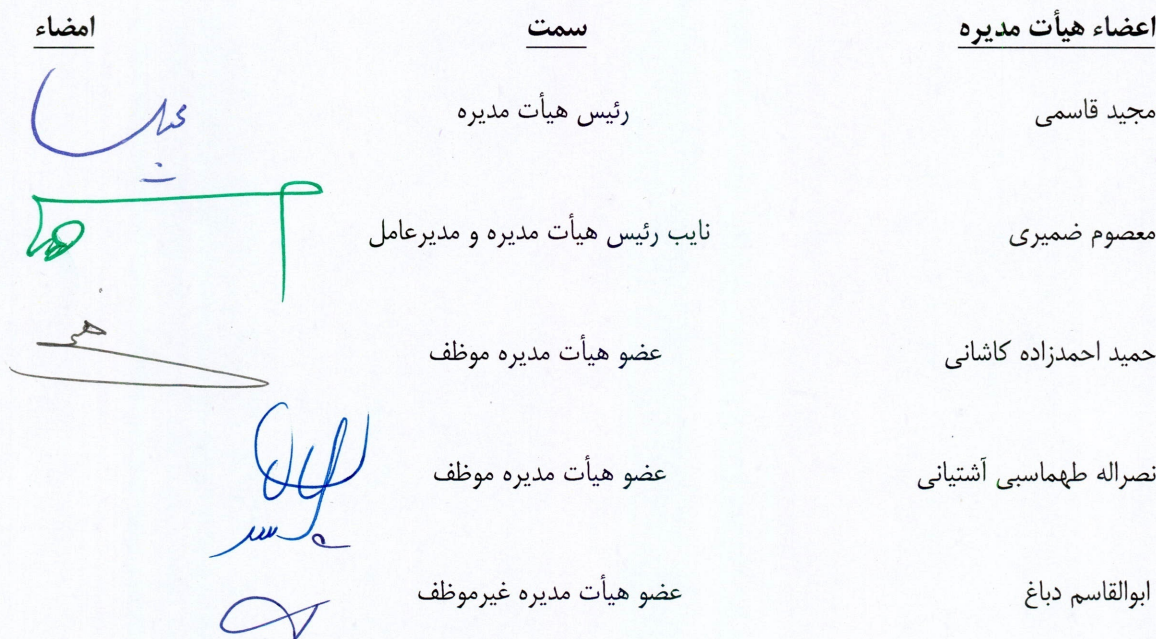 اعضاء هیأت مدیره سمت امضاء
مجید قاسمی رئیس هیأت مدیره
معصوم ضمیری نایب رئیس هیأت مدیره و مدیرعامل
حمید احمدزاده کاشانی عضو هیأت مدیره موظف
نصراله طهماسبی آشتیانی عضو هیأت مدیره موظف
ابوالقاسم دباغ عضو هیأت مدیره غیرموظف